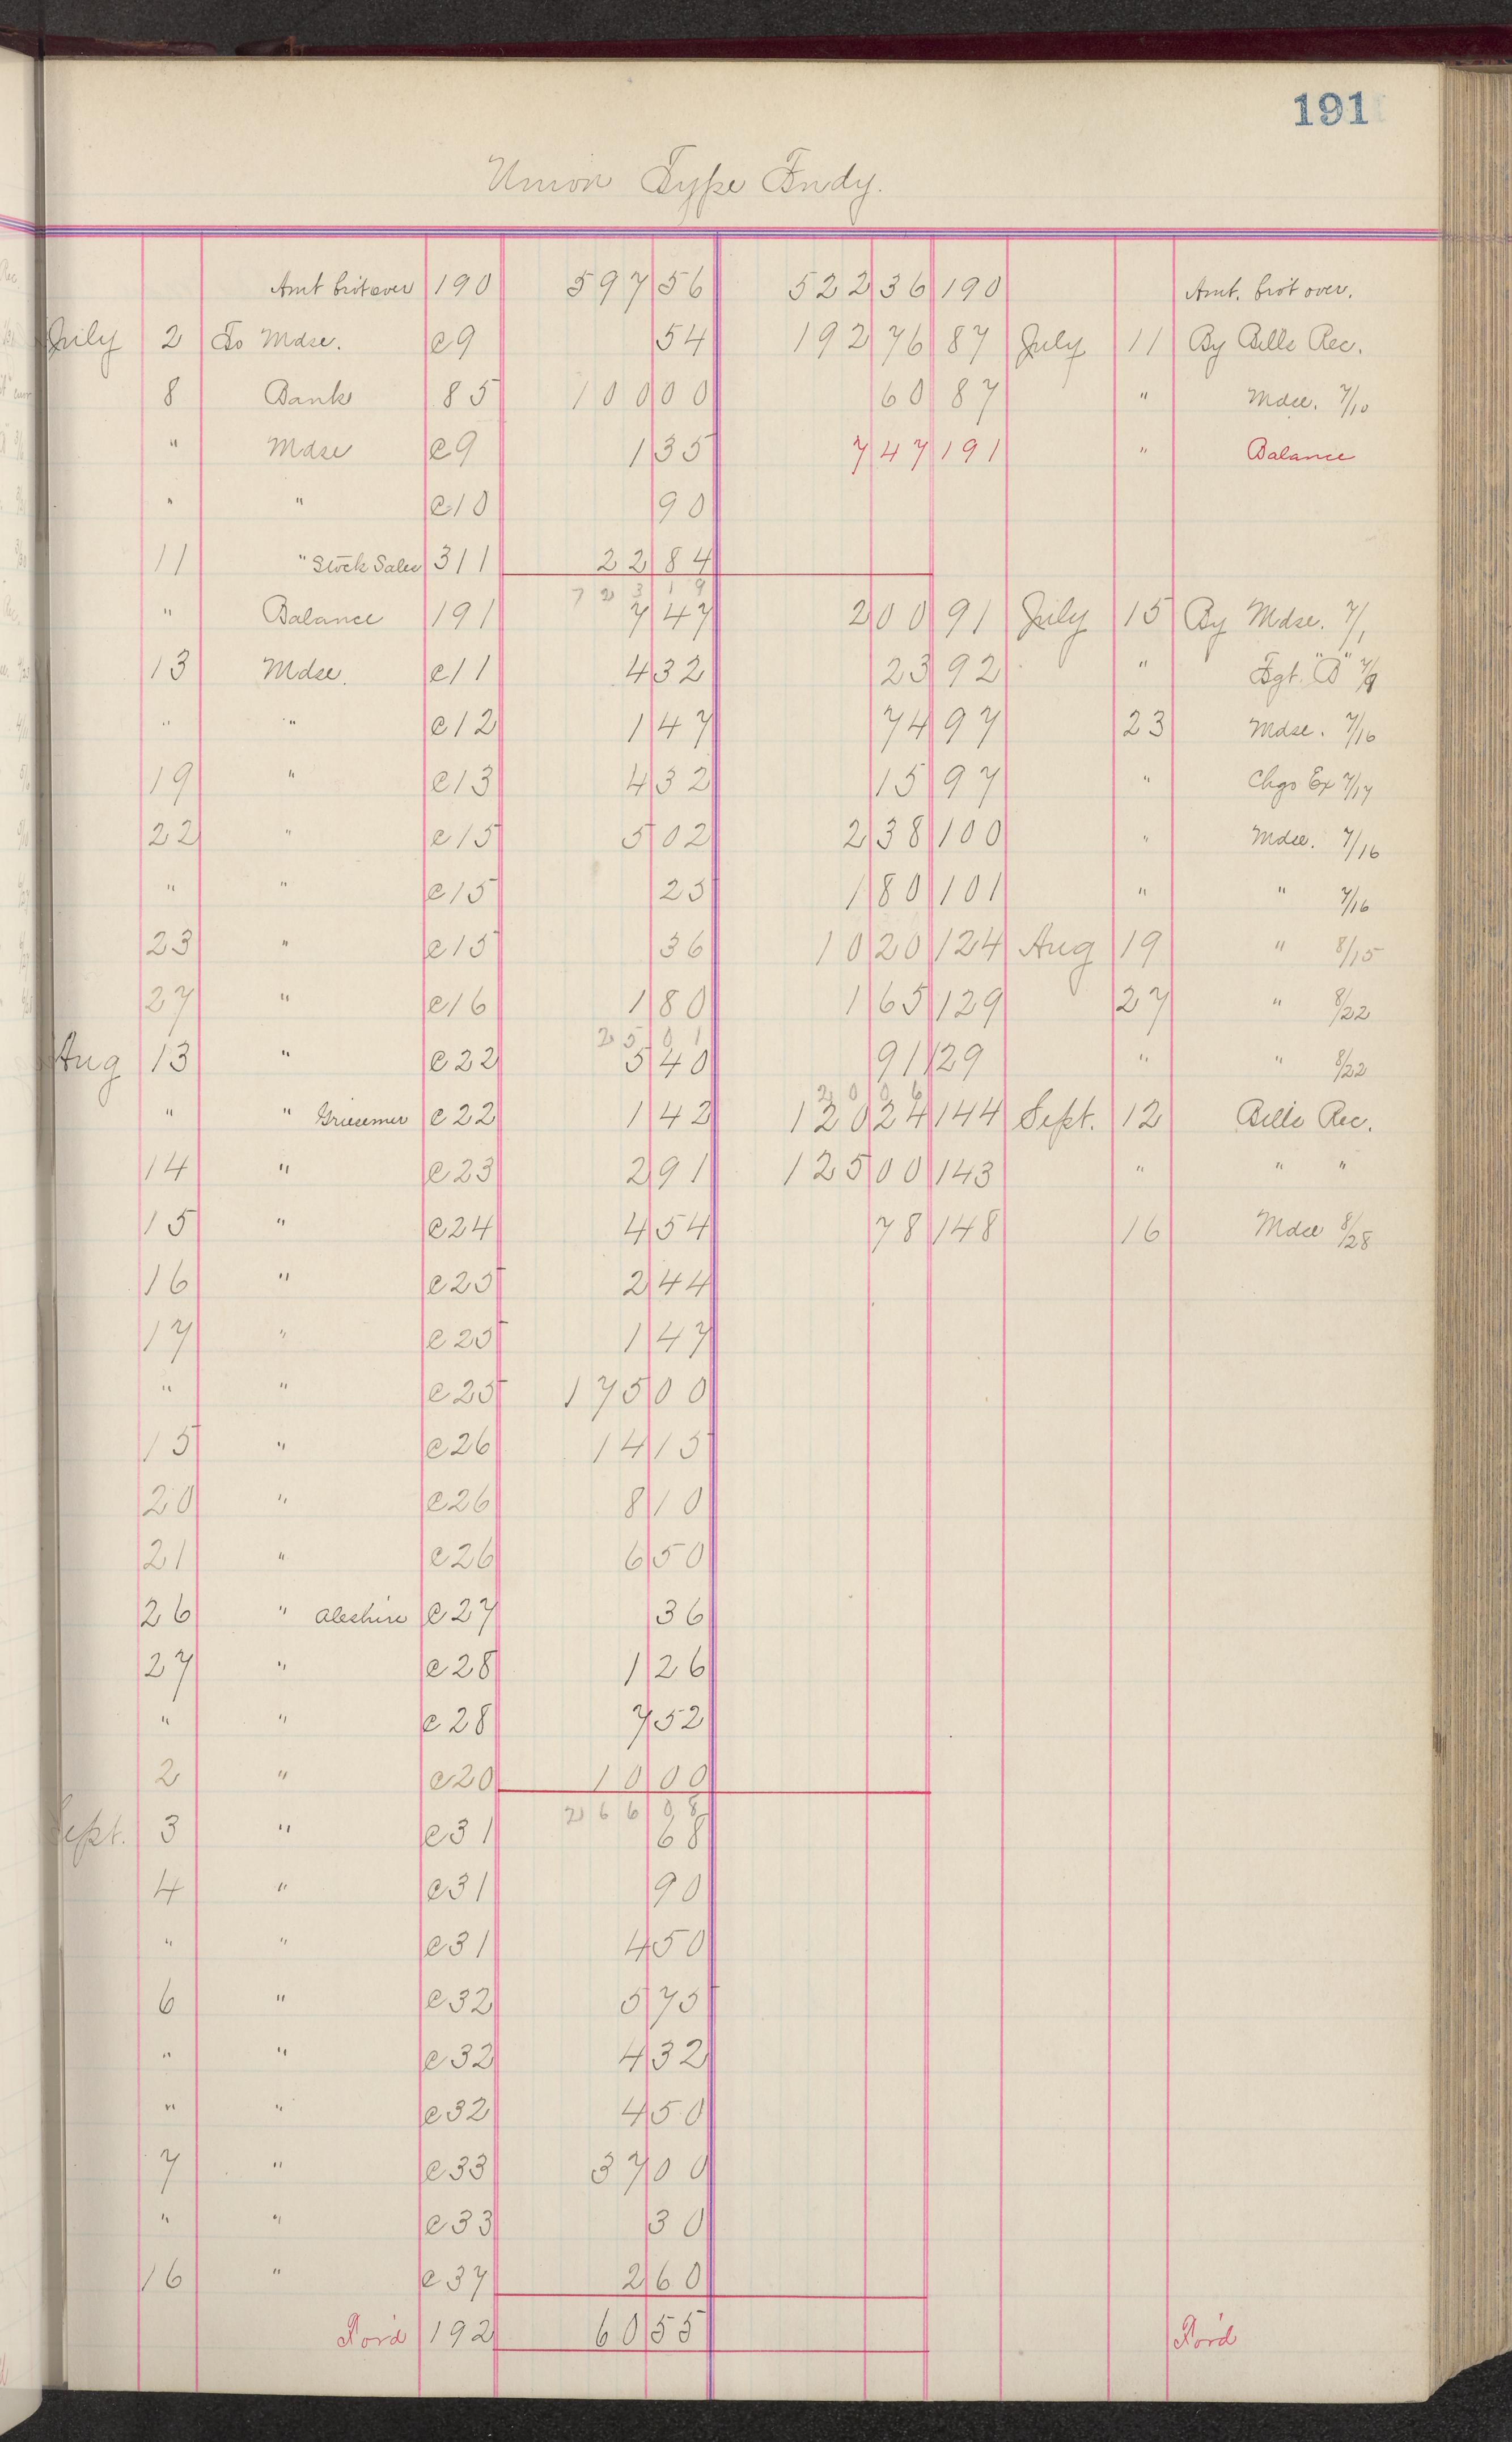 191
Union Type Fndy.
Amt brot over 190 597 56 522 36 190 Amt. brot over.
July 2 To Mdse. e9 54 192 76 87 July 11 By Bills Rec.
8 Bank 85 100 00 60 87 " Mdse. 7/10
" Mdse e9 1 35 7 47 191 " Balance
" " e10 90
11 " Stock Sales 311 22 84
723 19
" Balance 191 7 47 2 00 91 July 15 By Mdse. 7/1
13 Mdse. e11 4 32 23 92 " Fgt. "B" 7/9
" " e12 1 47 74 97 23 Mdse. 7/16
19 " e13 4 32 15 97 " Chgs Ex 7/17
22 " e15 5 02 2 38 100 " Mdse. 7/16
" " e15 25 1 80 101 " " 7/16
23 " e15 36 10 20 124 Aug 19 " 8/15
27 " e16 1 80 1 65 129 27 " 8/22
25 01
Aug 13 " e22 5 40 91 129 " " 8/22
20 06
" " Griesemer e22 1 42 120 24 144 Sept. 12 Bills Rec.
14 " e23 2 91 125 00 143 " " "
15 " e24 4 54 78 148 16 Mdse 8/28
16 " e25 2 44
17 " e25 1 47
" " e25 175 00
15 " e26 14 15
20 " e26 8 10
21 " e26 6 50
26 " Aleshire e27 36
27 " e28 1 26
" " e28 7 52
2 " e20 10 00
266 08
Sept. 3 " e31 68
4 " e31 90
" " e31 4 50
6 " e32 5 75
" " e32 4 32
" " e32 4 50
7 " e33 37 00
" " e33 30
16 " e37 2 60
For'd 192 60 55 For'd